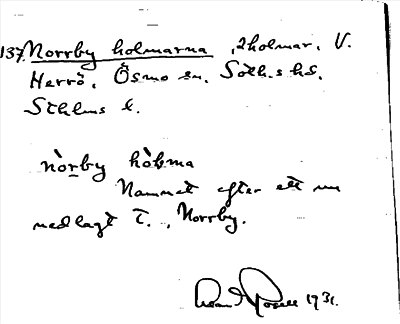 137. Norrby holmarna, 2 holmar, V.
Herrö, Ösmo sn. Soth.s hd.
Sthlms l.
nòrby hòłma
Namnet efter ett nu
nedlagt T., Norrby.
1931.